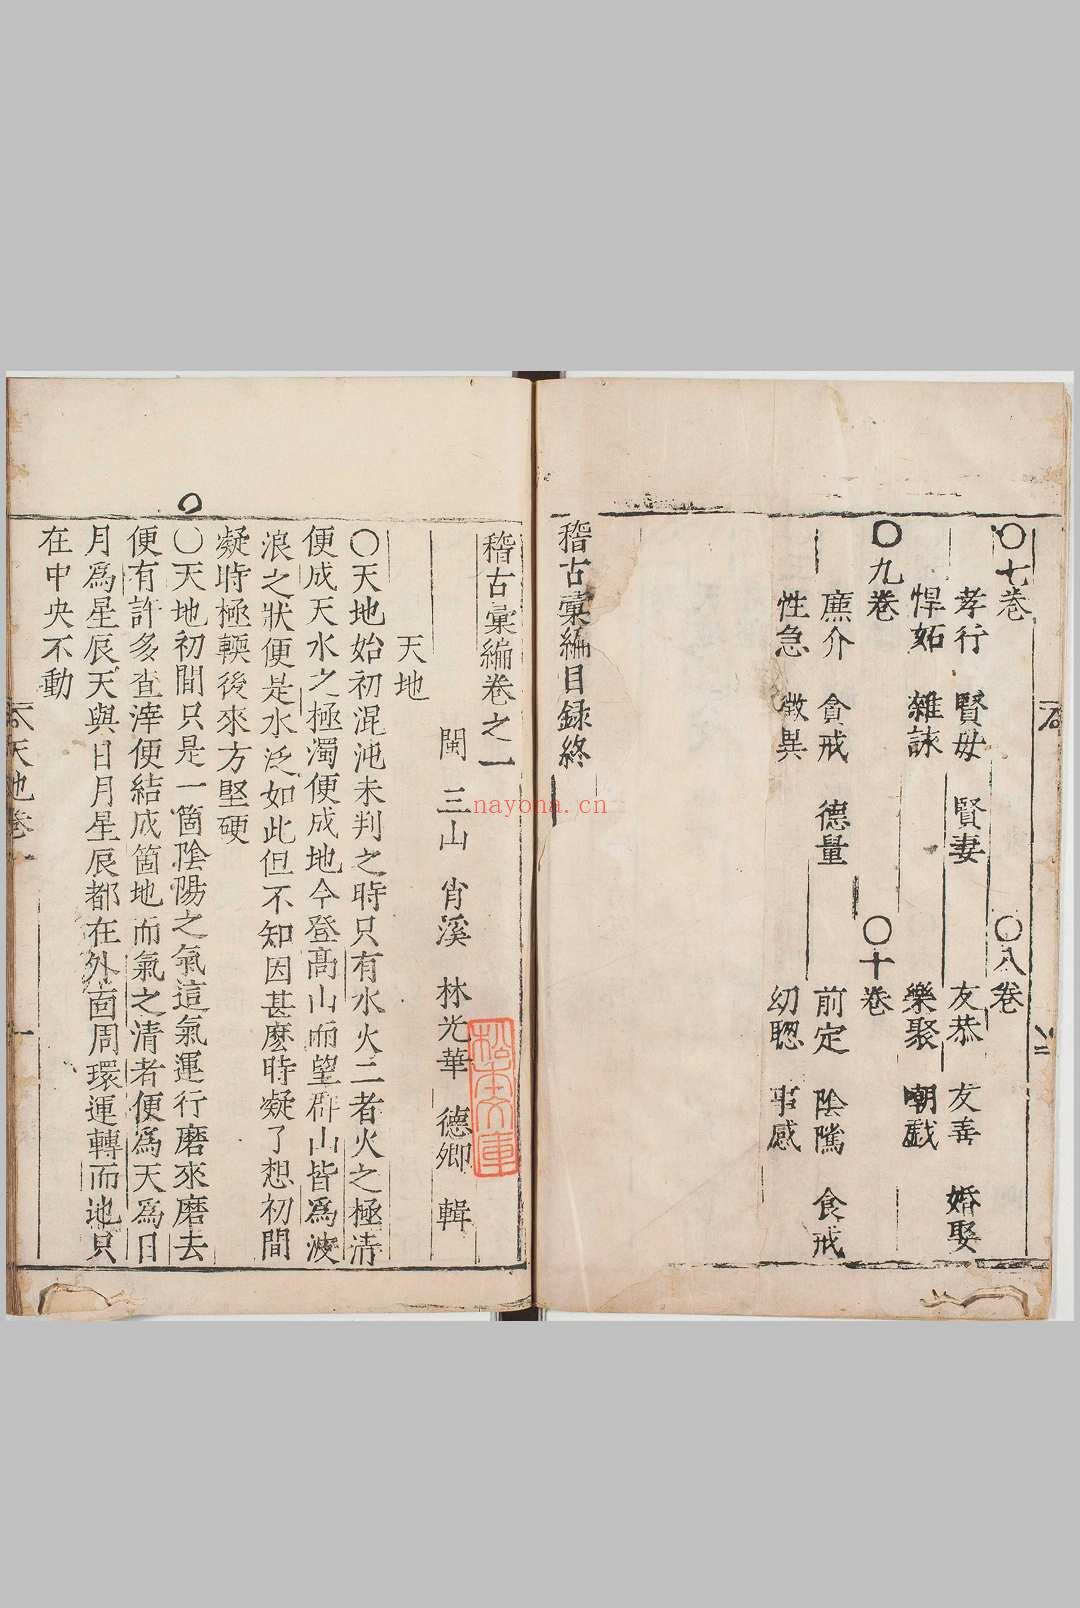 〇七卷
孝行　賢母　賢妻
悍妬　雜詠
〇八卷
友恭　友善　婚娶
樂聚　嘲戲
〇九卷
廉介　貪戒　德量
性急　徵異
〇十卷
前定　陰隲　食戒
幼聰　事感
稽古彙編目録終
稽古彙編卷之一
閩　三山　肖溪　林光華　德卿　輯
天地
〇天地始初混沌未判之時只有水火二者火之極清
便成天水之極濁便成地今登高山而望群山皆爲波
浪之狀便是水泛如此但不知因甚麽時凝了想初間
凝時極輭後來方堅硬
〇天地初間只是一箇陰陽之氣這氣運行磨來磨去
便有許多查滓便結成箇地而氣之清者便爲天爲日
月爲星辰天與日月星辰都在外面周環運轉而地只
在中央不動
天地卷一
一
nayona.cn